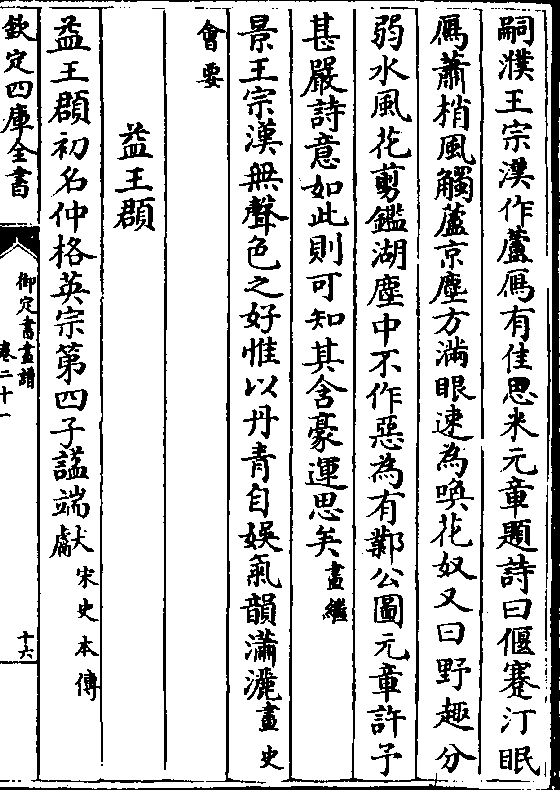 嗣濮王宗漢作蘆鴈有佳思米元章題詩曰偃蹇汀眠
鴈蕭梢風觸蘆京塵方滿眼速為喚花奴又曰野趣分
弱水風花剪鑑湖塵中不作惡為有鄴公圖元章許予
甚嚴詩意如此則可知其含豪運思矣畫繼
景王宗漢無聲色之好惟以丹青自娛氣韻瀟灑畫史
會要
益王頵
益王頵初名仲格英宗第四子諡端獻宋史本傳
欽定四庫全書
御定書畫譜
卷二十一
十六